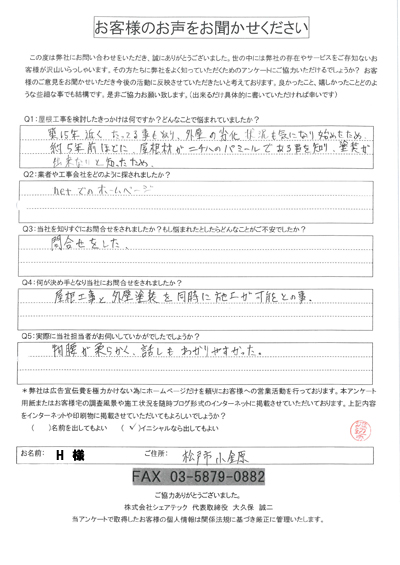 お客様のお声をお聞かせください
この度は弊社にお問い合わせをいただき、誠にありがとうございました。世の中には弊社の存在やサービスをご存知ないお
客様が沢山いらっしゃいます。その方たちに弊社をよく知っていただくためのアンケートにご協力いただけるでしょうか？ お客
様のご意見をお聞かせいただき今後の活動に反映させていただきたいと考えております。良かったこと、嬉しかったことどのよ
うな些細な事でも結構です。是非ご協力お願い致します。（出来るだけ具体的に書いていただければ幸いです）
Q1:屋根工事を検討したきっかけは何ですか？どんなことで悩まれていましたか？
築15年近くたってる事もあり、外壁の劣化状況も気になり始めたため。
約5年前ほどに、屋根材がニチハのパミールである事を知り、塗装が
出来ないと知ったため
Q2:業者や工事会社をどのように探されましたか？
netでのホームページ
Q3:当社を知りすぐにお問合せをされましたか？もし悩まれたとしたらどんなことがご不安でしたか？
問合せをした、
Q4:何が決め手となり当社にお問合せをされましたか？
屋根工事と外壁塗装を同時に施工が可能との事。
Q5:実際に当社担当者がお伺いしていかがでしたでしょうか？
物腰が柔らかく、話しもわかりやすかった。
＊弊社は広告宣伝費を極力かけない為にホームページだけを頼りにお客様への営業活動を行っております。本アンケート
用紙またはお客様宅の調査風景や施工状況を随時ブログ形式のインターネットに掲載させていただいております。上記内容
をインターネットや印刷物に掲載させていただいてもよろしいでしょうか？
（ ）名前を出してもよい （✓）イニシャルなら出してもよい
お名前: H 様 ご住所: 松戸市小金原
FAX 03-5879-0882
ご協力ありがとうございました。
株式会社シェアテック 代表取締役 大久保 誠二
当アンケートで取得したお客様の個人情報は関係法規に基づき厳正に管理いたします。